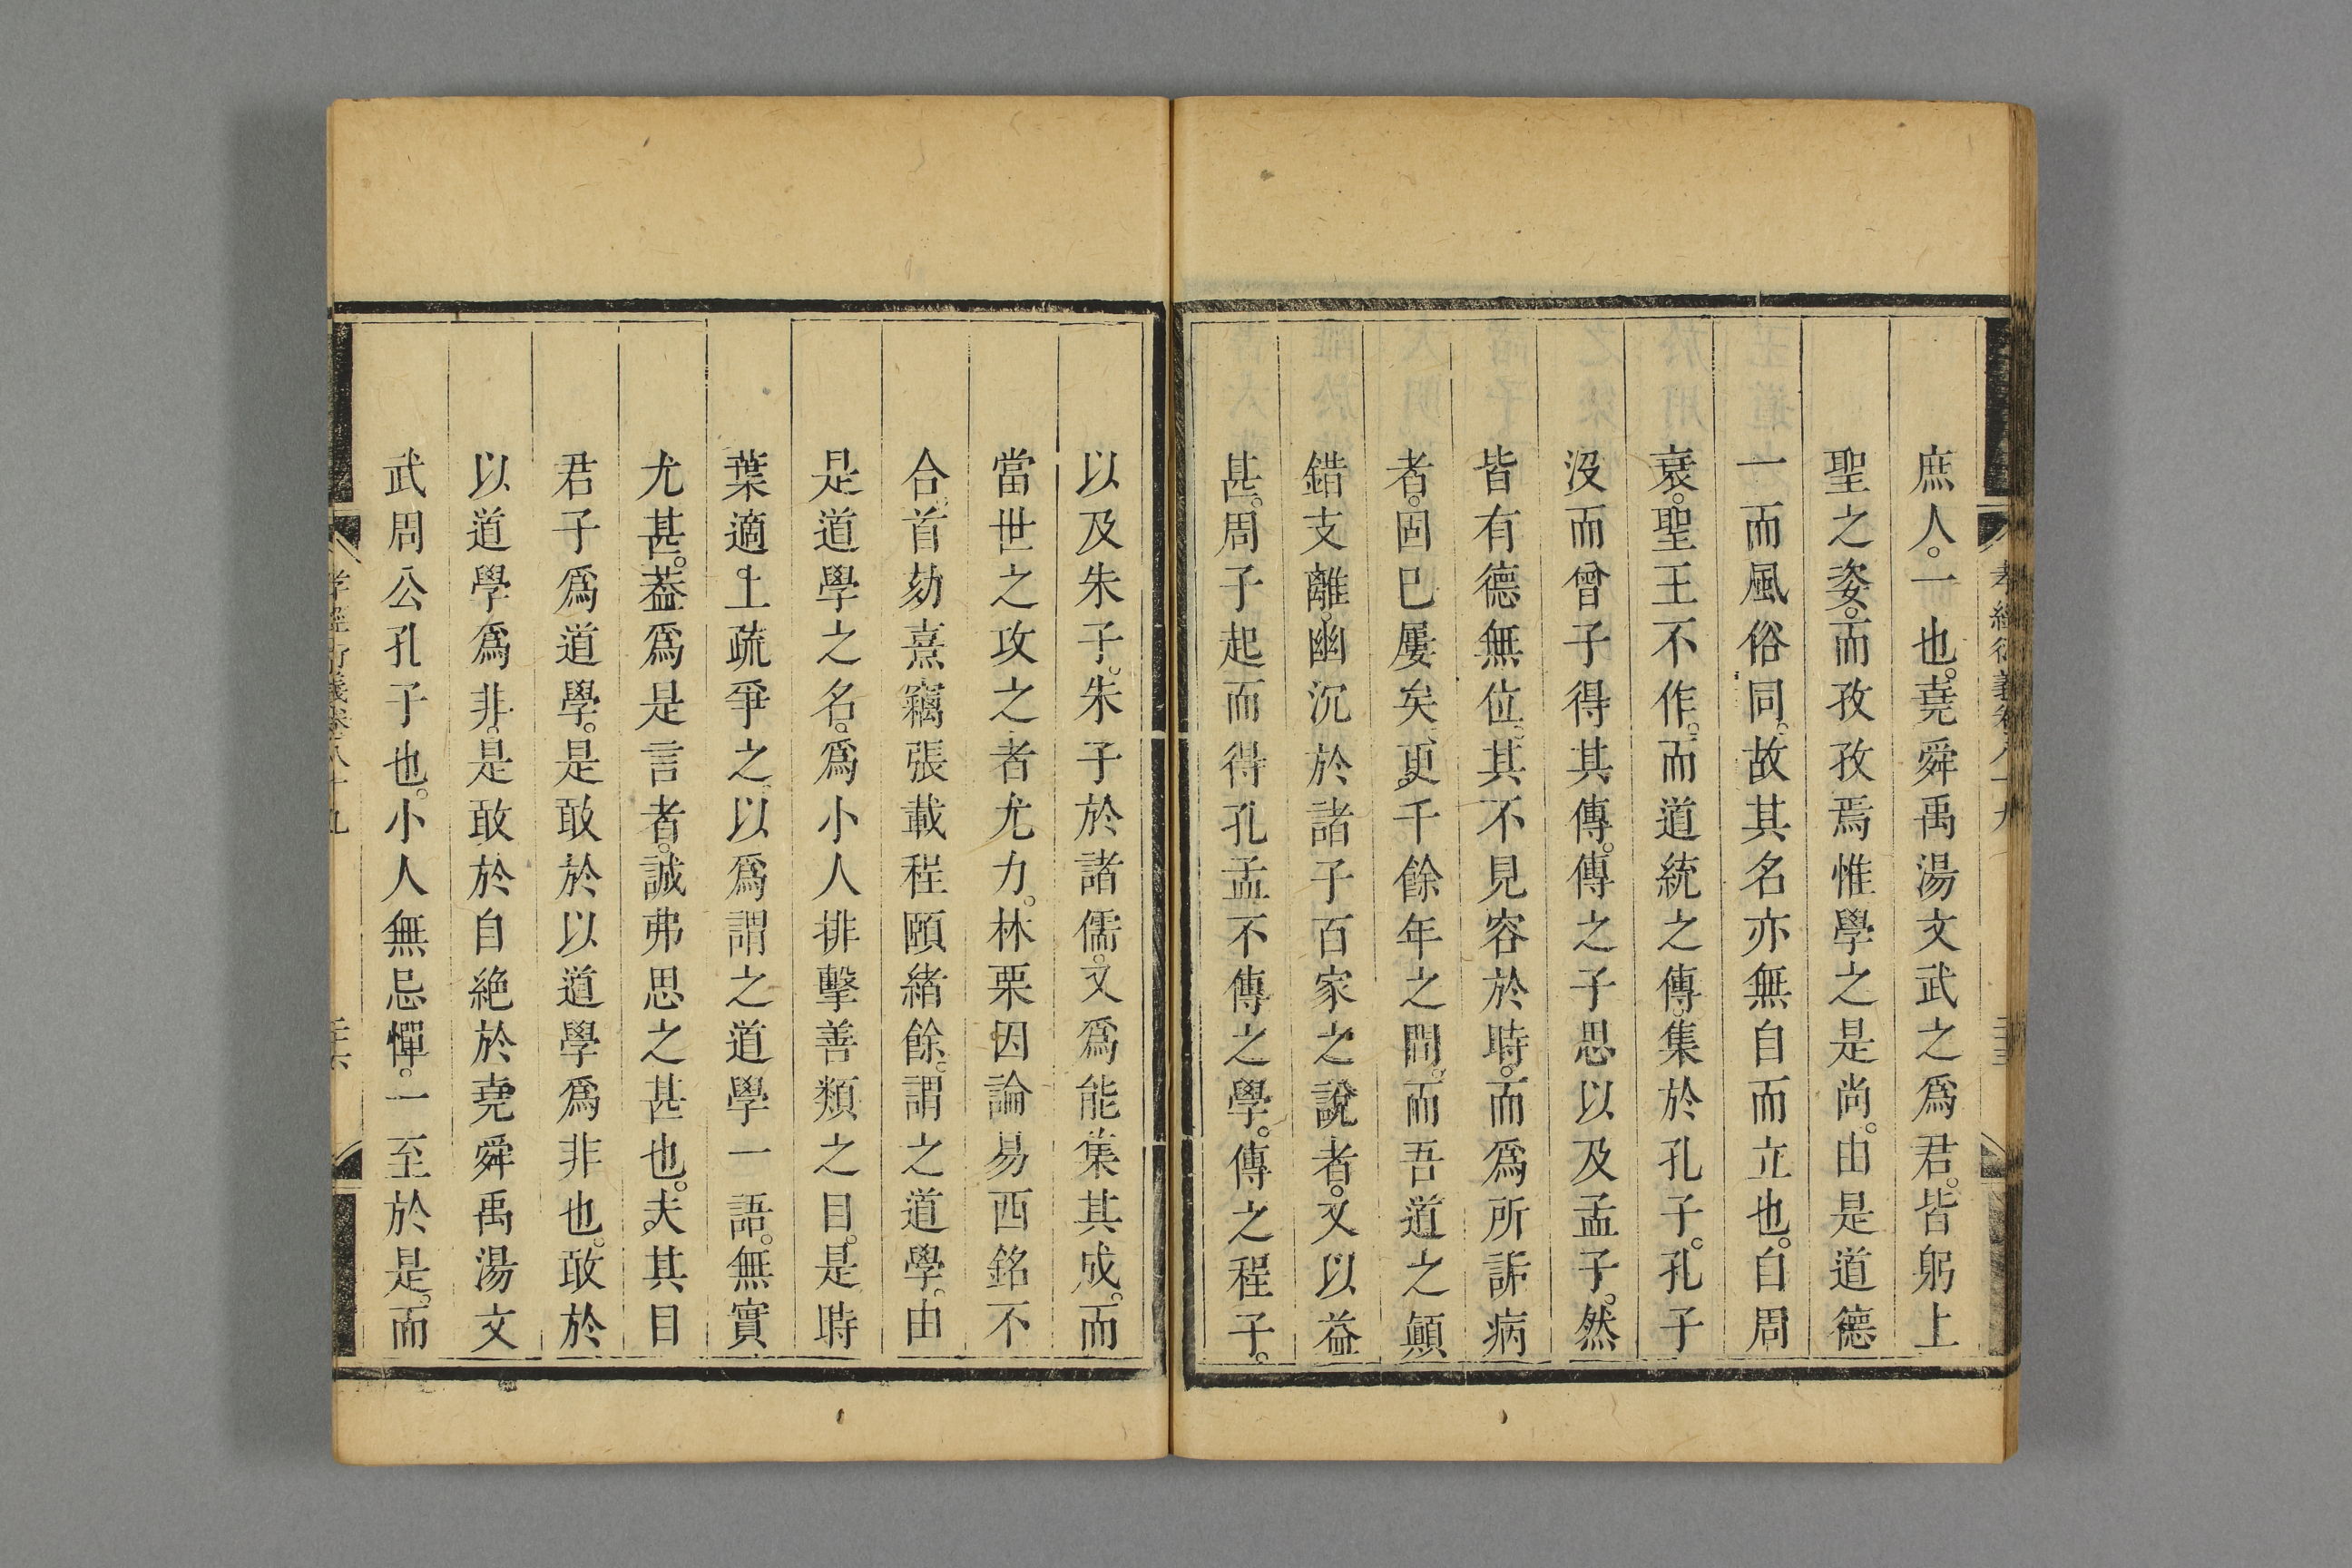 孝經衍義卷八十九
庶人。一也。堯舜禹湯文武之爲君。皆躬上
聖之姿。而孜孜焉惟學之是尚。由是道德
一而風俗同。故其名亦無自而立也。自周
衰。聖王不作。而道統之傳。集於孔子。孔子
沒而曾子得其傳。傳之子思以及孟子。然
皆有德無位。其不見容於時。而爲所訴病
者。固已屢矣。更千餘年之間。而吾道之顛
錯支離。幽沉於諸子百家之說者。又以益
甚。周子起而得孔孟不傳之學。傳之程子。
以及朱子。朱子於諸儒。又爲能集其成。而
當世之攻之者尤力。林栗因論易西銘不
合。首劾熹竊張載程頤緒餘。謂之道學。由
是道學之名。爲小人排擊善類之目。是時
葉適上疏爭之。以爲謂之道學一語。無實
尤甚。葢爲是言者。誠弗思之甚也。夫其目
君子爲道學。是敢於以道學爲非也。敢於
以道學爲非。是敢於自絶於堯舜禹湯文
武周公孔子也。小人無忌憚。一至於是。而
孝經衍義卷八十九